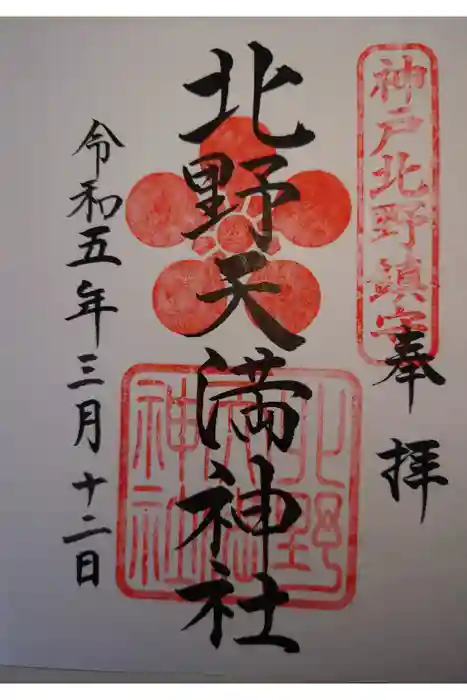 神戸北野鎮守
奉拝
北野天満神社
北野天満神社
令和五年三月十二日